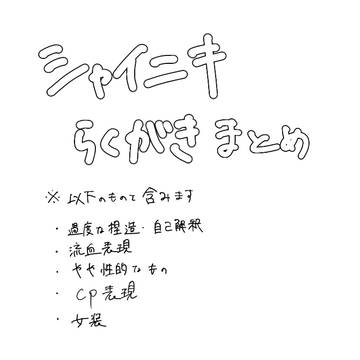 シャイニキ
らくがきまとめ
※ 以下のもので含みます
・過度な捏造・自己解釈
・流血表現
・やや性的なもの
・CP表現
・女装